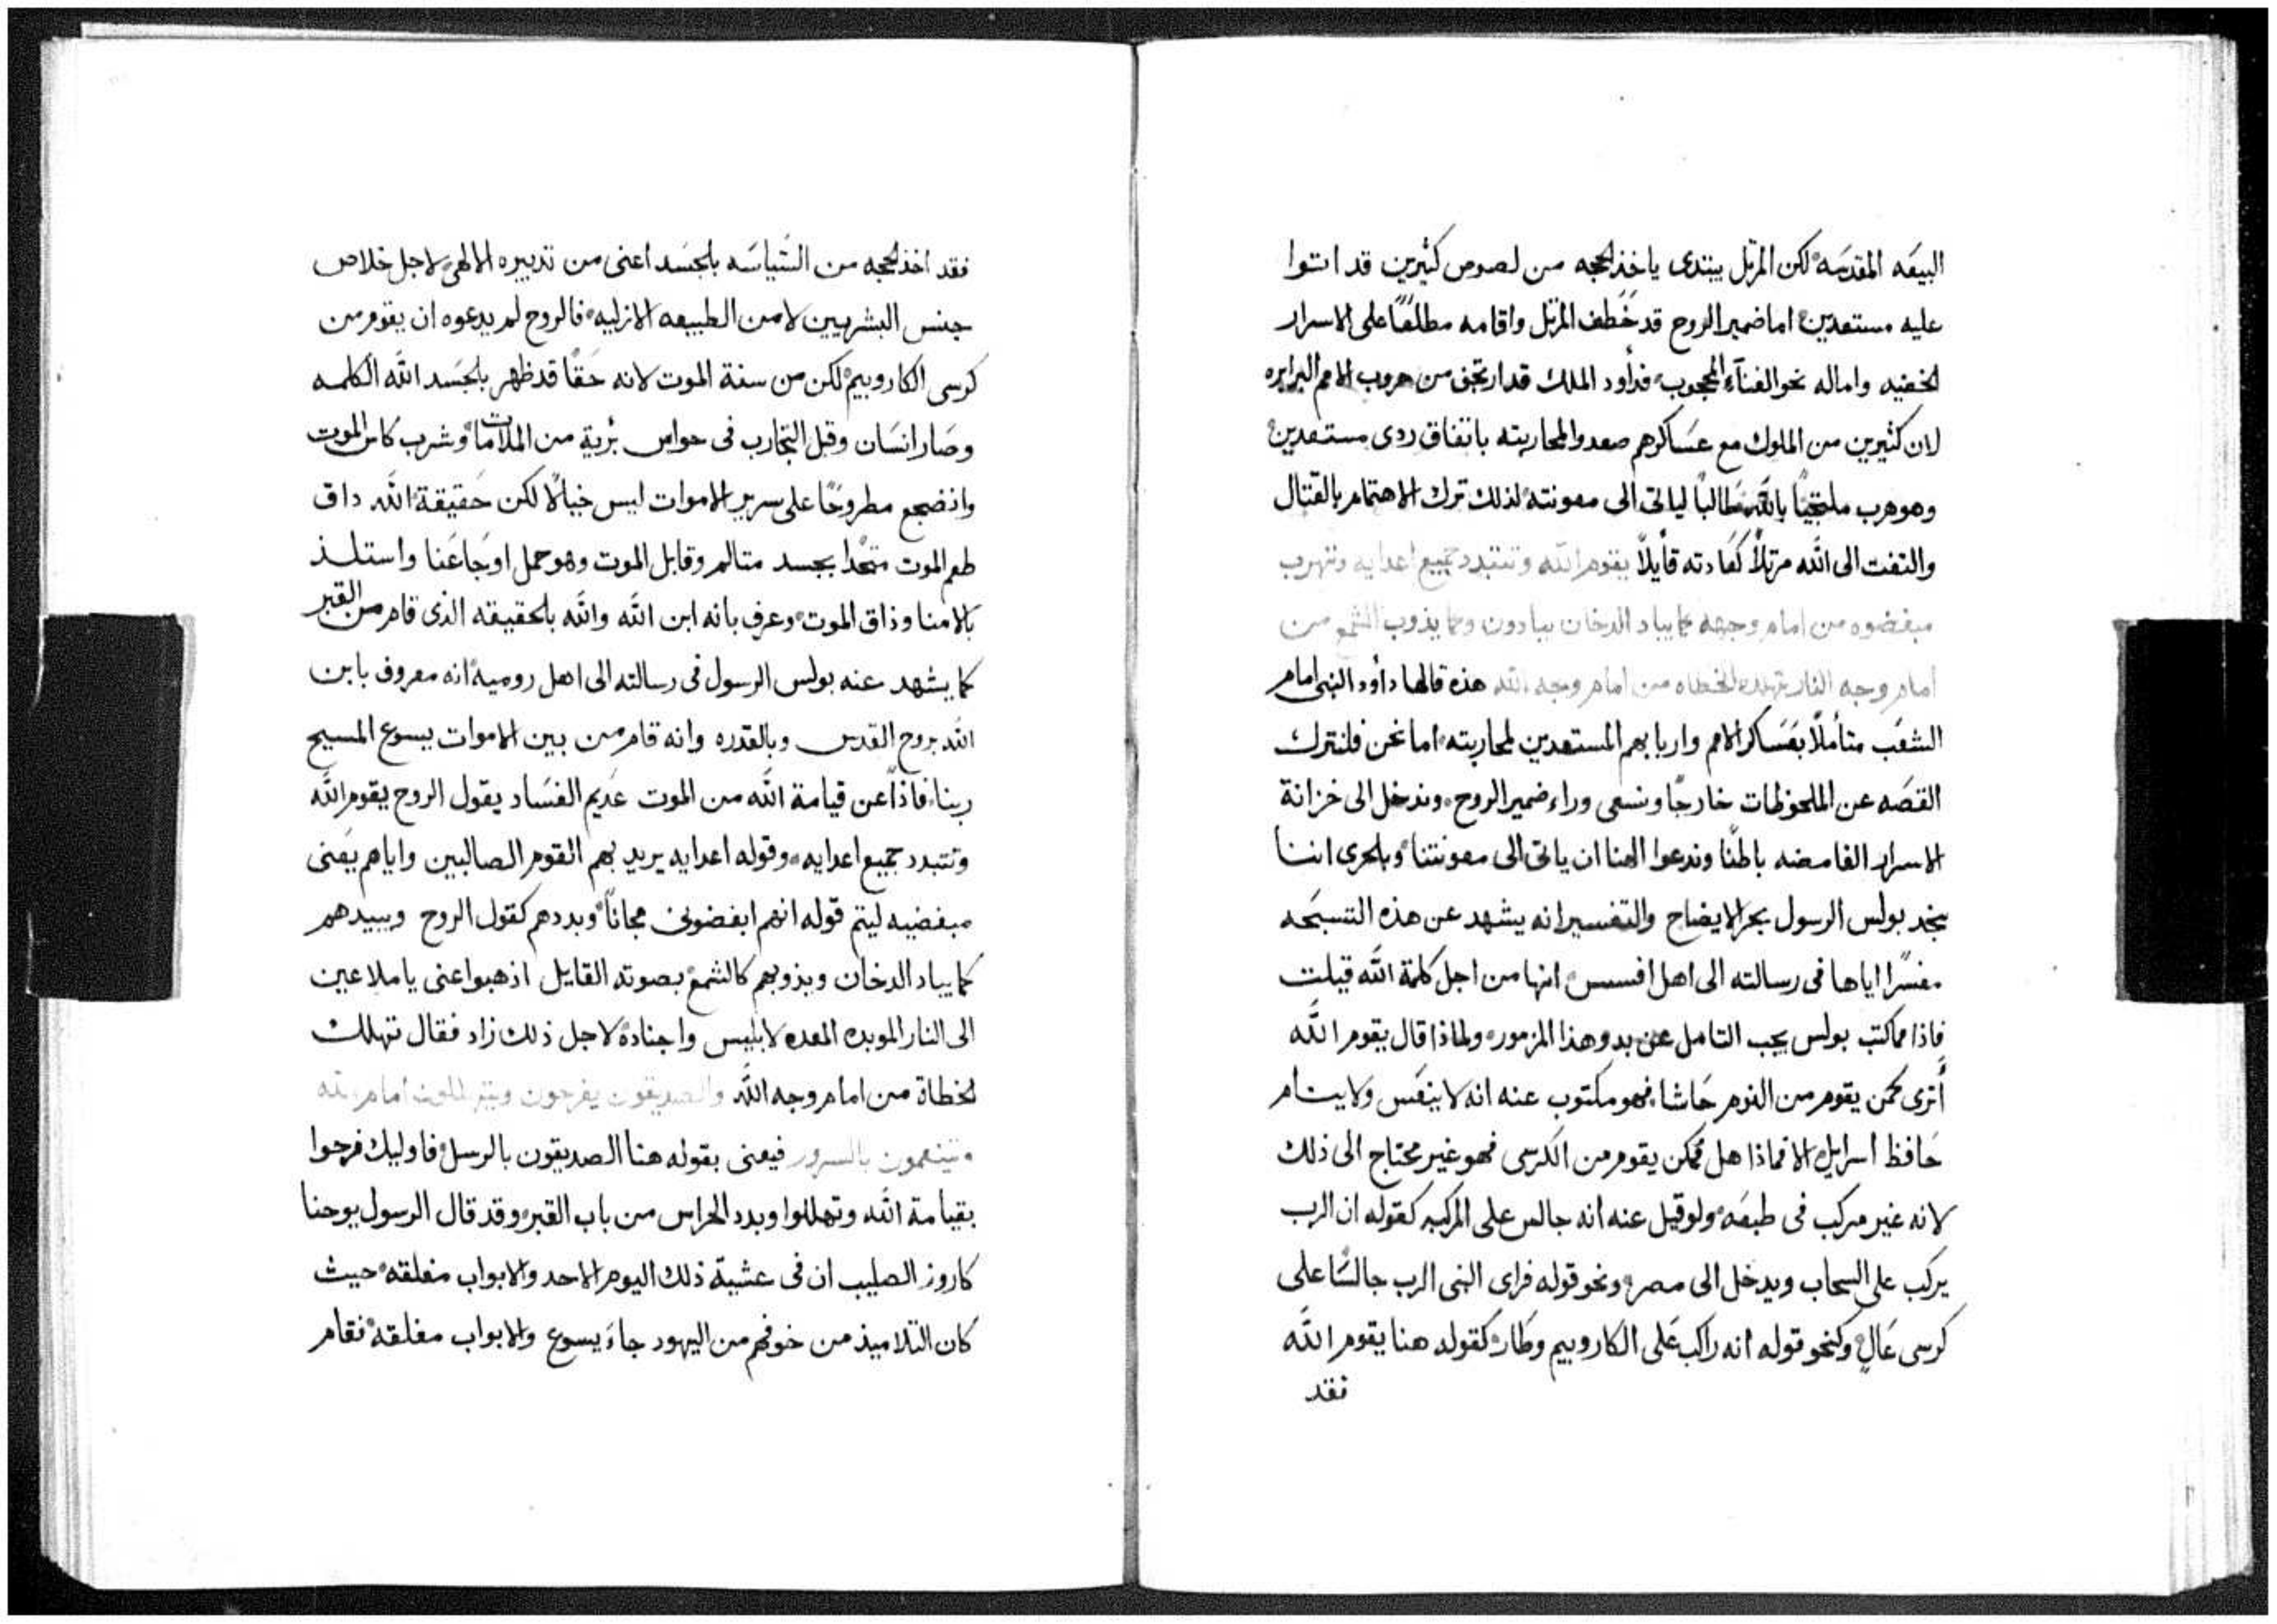 البيعَه المقدسَه لكن المرتل يبتدى ياخذ الحجه من لصوص كثيرين قد اتتوا
عليه مستعدين اما ضمير الروح قد خطف المرتل واقامه مطلعًا على الاسرار
الخفيه واماله نحو الفنآء المحجوب فدأود الملك قد ارتجف من هروب الامم البرابره
لان كثيرين من الملوك مع عسَاكرهم صعدوا لمحاربته باتفاق ردى مستعدين
وهو هرب ملتجيًا بالله طالبًا لياتى الى معونته لذلك ترك الاهتمام بالقتال
والتفت الى الله مرتلًا كعَادته قأيلًا يقوم الله وتتبدد جميع اعدايه وتهرب
مبغضوه من امام وجهه كما يباد الدخان يبادون وكما يذوب الشمع من
امام وجه النار تهلك الخطاه من امام وجه الله هذه قالها دأود النبى امام
الشعَب متأملًا بعَسَاكر الامم واربابهم المستعدين لمحاربته اما نحن فلنترك
القصَه عن الملحوظات خارجًا ونسعى وراء ضمير الروح وندخل الى خزانة
الاسرار الغامضه باطنًا وندعوا الهنا ان ياتى الى معونتنا وبلحرى اننا
نجد بولس الرسول بحر الايضاح والتفسير انه يشهد عن هذه التسبحَه
مفسرًا اياها فى رسالته الى اهل افسس انها من اجل كلمة الله قيلت
فاذا مما كتب بولس يجب التامل عن بدو هذا المزمور ولماذا قال يقوم الله
أترى كمن يقوم من النوم حَاشا فهو مكتوب عنه انه لا ينعَس ولا ينام
حَافظ اسرايل الا فماذا هل ممكن يقوم من الكرسى فهو غير محتاج الى ذلك
لانه غير مركب فى طبعَه ولو قيل عنه انه جالس على المركبه كقوله ان الرب
يركب على السحاب ويدخل الى مصر ونحو قوله فراى النبى الرب جالسًا على
كرسى عَالٍ وكنحو قوله انه راكب عَلى الكاروبيم وطَار كقوله هنا يقوم الله
فقد
فقد اخذ الحجه من السَياسَه بالجسَد اعنى من تدبيره الالهى لاجل خلاص
جنس البشريين لا من الطبيعه الازليه فالروح لم يدعوه ان يقوم من
كرسى الكاروبيم لكن من سنة الموت لانه حَقًا قد ظهر بالجسَد الله الكلمه
وصَار انسَان وقبل التجارب فى حواس برُية من الملامات وشرب كاس الموت
واضجع مطروحًا على سرير الاموات ليس خيالًا لكن حَقيقة الله داق
طعم الموت متحدًا بجسد متالم وقابل الموت وهو حمل اوجَاعَنا واستلذ
بالامنا وذاق الموت وعرف بانه ابن الله والله بالحقيقه الذى قام من القبر
كما يشهد عنه بولس الرسول فى رسالته الى اهل روميه انه معروف بابن
الله بروح القدس وبالقدره وانه قام من بين الاموات يسوع المسيح
ربنا فاذًا عن قيامة الله من الموت عَديم الفسَاد يقول الروح يقوم الله
وتتبدد جميع اعدايه وقوله اعدايه يريد بهم القوم الصالبين واياهم يعَنى
مبغضيه ليتم قوله انهم ابغضونى مجانًا وبددهم كقول الروح ويبيدهم
كما يباد الدخان ويذوبهم كالشمع بصوته القايل اذهبوا عنى يا ملاعين
الى النار الموبده المعده لابليس واجناده لاجل ذلك زاد فقال تهلك
الخطاة من امام وجه الله والصديقون يفرحون ويتهللون امام الله
ويتنعمون بالسرور فيعنى بقوله هنا الصديقون بالرسل فاوليك فرحوا
بقيامة الله وتهللوا وبدد الحراس من باب القبر وقد قال الرسول يوحنا
كاروز الصليب ان فى عشية ذلك اليوم الاحد والابواب مغلقه حيث
كان التلاميذ من خوفهم من اليهود جاءَ يسوع والابواب مغلقه فقام